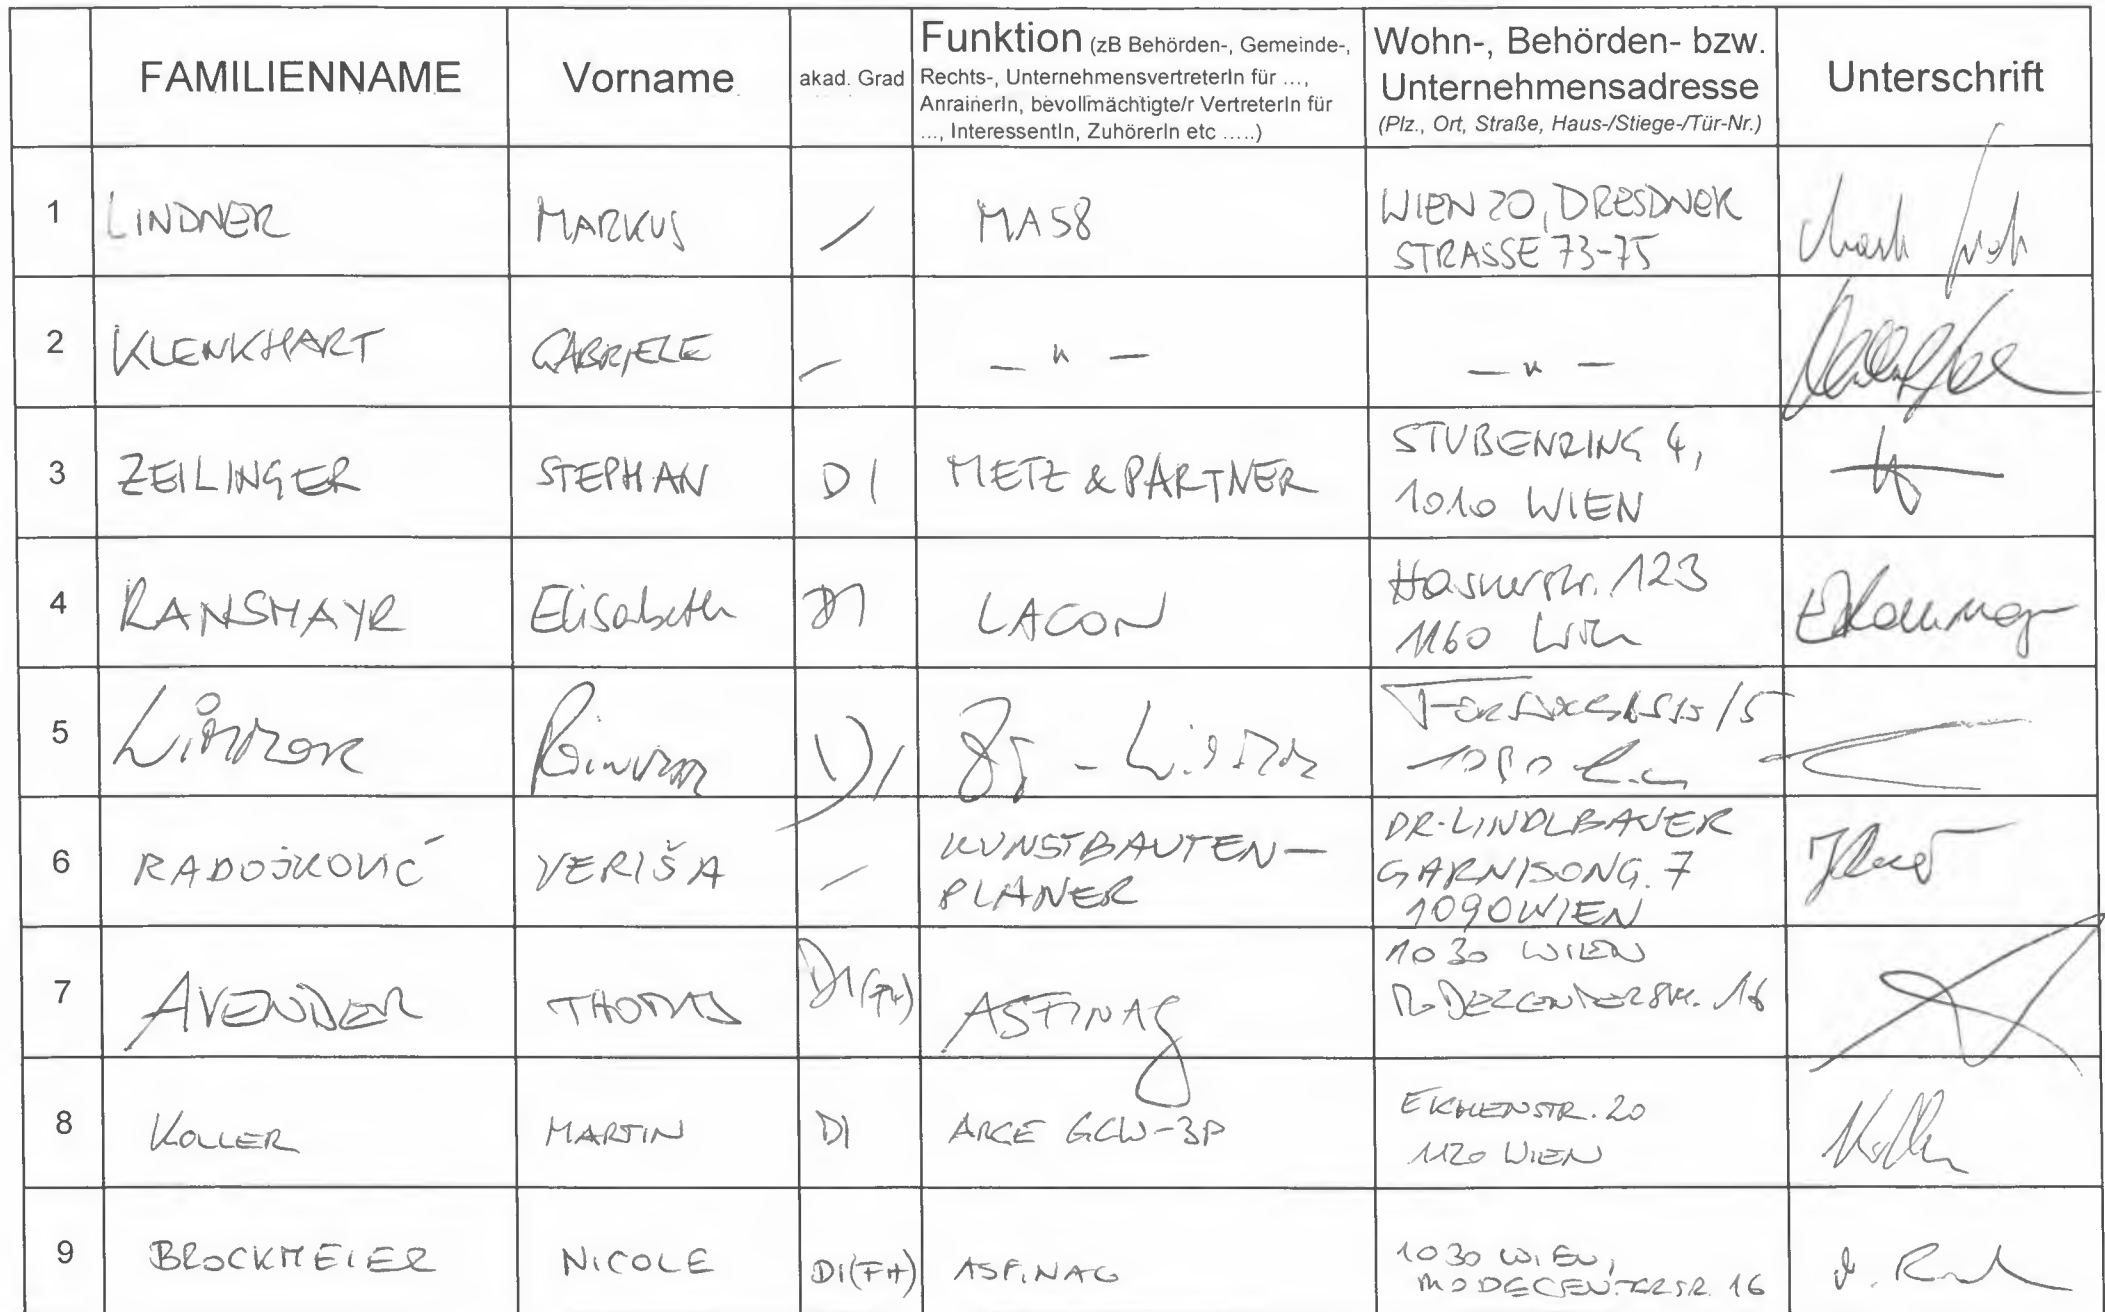 FAMILIENNAME Vorname akad. Grad Funktion (zB Behörden-, Gemeinde-,
Rechts-, UnternehmensvertreterIn für ...,
AnrainerIn, bevollmächtigte/r VertreterIn für
..., InteressentIn, ZuhörerIn etc .....)
Wohn-, Behörden- bzw.
Unternehmensadresse
(Plz., Ort, Straße, Haus-/Stiege-/Tür-Nr.)
Unterschrift
1 LINDNER MARKUS / MA58 WIEN 20, DRESDNER
STRASSE 73-75
2 KLENKHART GABRIELE / — " — — " —
3 ZEILINGER STEPHAN DI METZ & PARTNER STUBENRING 4,
1010 WIEN
4 RANSMAYR Elisabeth DI LACON Hasnerstr. 123
1160 Wien
5 DI
6 RADOJKOVIĆ VERIŠA / KUNSTBAUTEN-
PLANER
DR. LINDLBAUER
GARNISONG. 7
1090 WIEN
7 AVENDER THOMAS DI(FH) ASFINAG 1030 WIEN
MODECENTERSTR. 16
8 KOLLER MARTIN DI ARGE GCW-3P EICHENSTR. 20
1120 WIEN
9 BROCKMEIER NICOLE DI(FH) ASFINAG 1030 WIEN,
MODECENTERSTR. 16